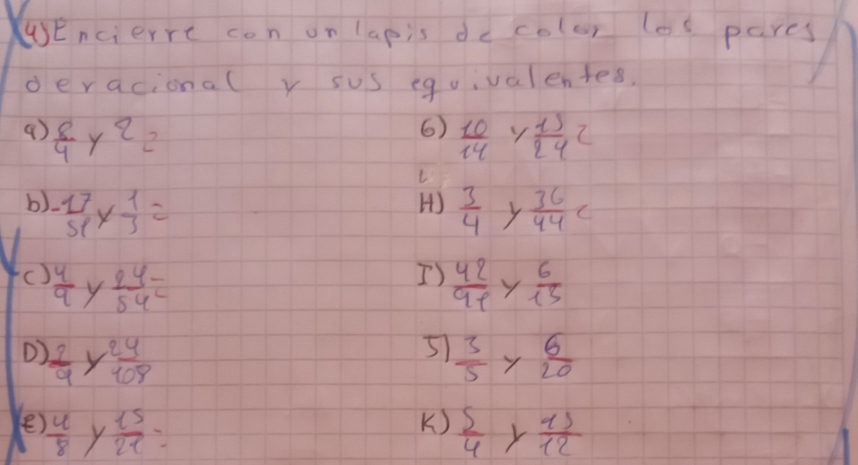 4) Encierre con un lapis de color los pares
deracional y sus equivalentes.
a) 8/4 y 2 =
b) -17/51 y 1/3 =
c) 4/9 y 24/54 =
D) 2/9 y 24/108
E) 4/8 y 15/21 =
G) 10/14 y 15/24 =
H) 3/4 y 36/44 =
I) 42/91 y 6/13
J) 3/5 y 6/20
K) 5/4 y 15/12